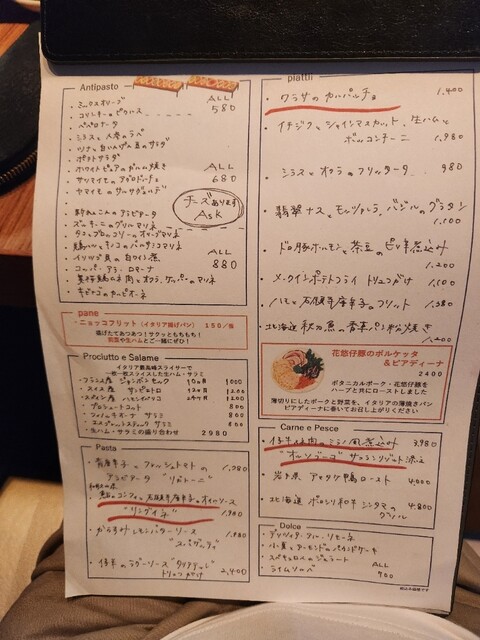 Antipasto
ALL
580
・ミックスオリーブ
・コリンキーのピクルス
・ペペロナータ
・シラスと人参のラペ
・ツナと白いんげん豆のサラダ
・ポテトサラダ
ALL
680
・サツマイモのアグロドルチェ
・ヤマイモのサルサヴェルデ
チーズあります
ASK
・ズッキーニのグリルマリネ
ALL
880
・イワシと豆の白ワイン煮
・コッパ・アラ・ロマーナ
pane
・ニョッコフリット（イタリア揚げパン） 150/枚
揚げたてあつあつ！サクッともちもち！
前菜や生ハムとご一緒にぜひ！
Prociutto e Salame
イタリア最高峰スライサーで
一枚一枚スライスした生ハム・サラミ
・フランス産 ジャンボンセック 10ヶ月 1000
・スイス産 サンピエトロ 12ヶ月 1200
・スペイン産 ハモンセラーノ 24ヶ月 1200
・プロシュートコット 800
・フィノッキオーナ サラミ 800
・エスプレッリエッテ サラミ 600
・生ハム・サラミの盛り合わせ 2980
Pasta
・青唐辛子とフレッシュトマトの 1,780
アラビアータ "リガトーニ"
・鮎のコンフィと万願寺唐辛子のオイルソース
"リングイネ" 1,980
・からすみレモンバターソース 1,980
"スパゲッティ"
・仔牛のラグーソース タリアテッレ
トリュフがけ 2,400
piattii
・ワラサのカルパッチョ 1,400
・イチジクとシャインマスカット、生ハムと
ボッコンチーニ 1,980
・シラスとオクラのフリッタータ 980
・翡翠ナスとモッツァレラ、バジルのグラタン
1,100
・ドロ豚ホルモンと茶豆のピリ辛煮込み
1,200
・メークインポテトフライ トリュフがけ 1,100
・ハモと万願寺唐辛子のフリット 1,380
・北海道 秋刀魚の香草パン粉焼き
1,200
花悠仔豚のポルケッタ
&ピアディーナ
2400
ボタニカルポーク・花悠仔豚を
ハーブと共にローストしました
薄切りにしたポークと野菜を、イタリアの薄焼きパン
ピアディーナに巻いてお召し上がりください
Carne e Pesce
・仔牛すね肉のミラノ風煮込み 3,980
"オッソブーコ" サフランリゾット添え
・岩手県 アマタケ鴨ロースト 4,000
・北海道 ポロシリ和牛 シンタマの 4,800
グリル
Dolce
・デリツィア・アル・リモーネ
・小夏とアーモンドのパウンドケーキ
・スペキュロスのジェラート ALL
・ライムソルベ 700
税込み価格です